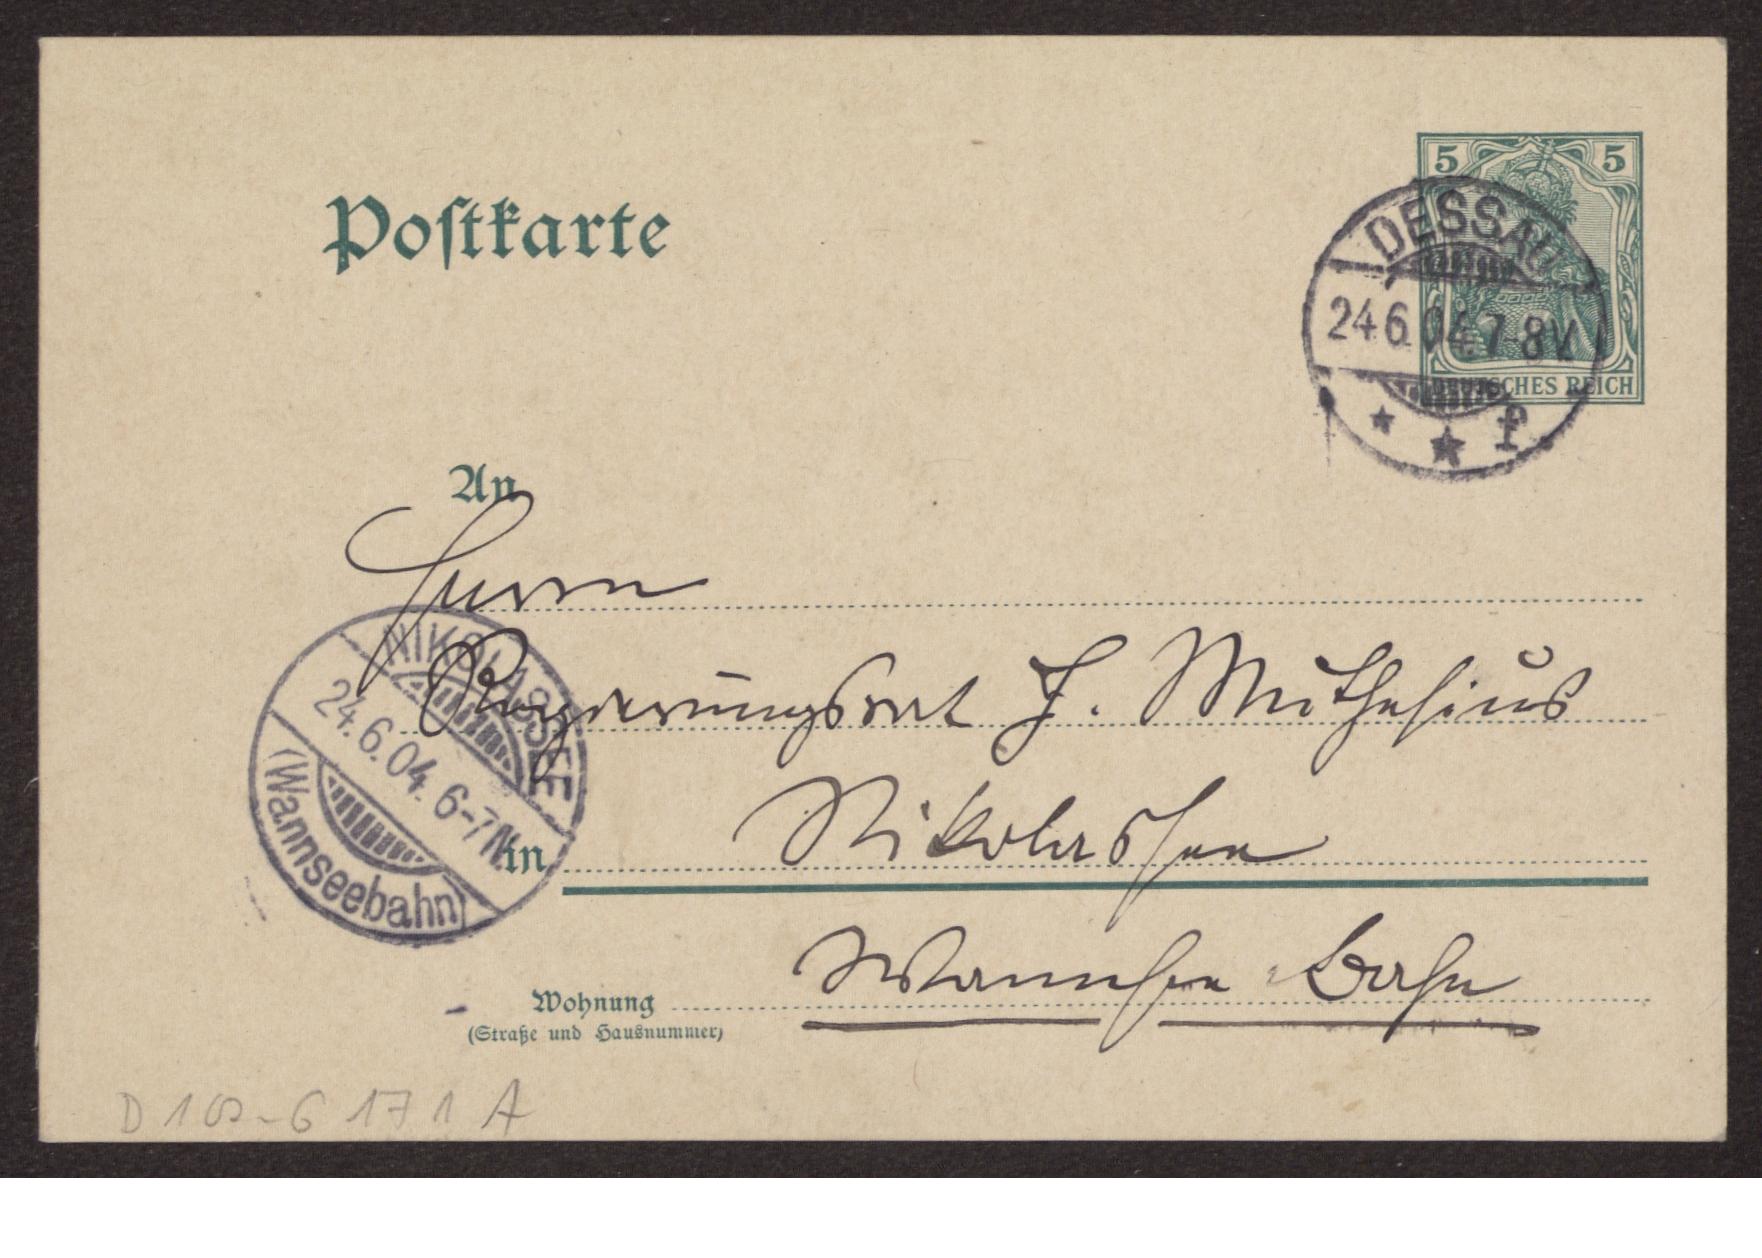 Postkarte
5 5
DEUTSCHES REICH
DESSAU
24.6.04.7-8V.
* * f
An
Herrn
Regierungsrat H. Muthesius
in Nikolassee
Wannsee-Bahn
Wohnung
(Straße und Hausnummer)
NIKOLASSEE
24.6.04. 6-7N.
(Wannseebahn)
D 102-6171 A